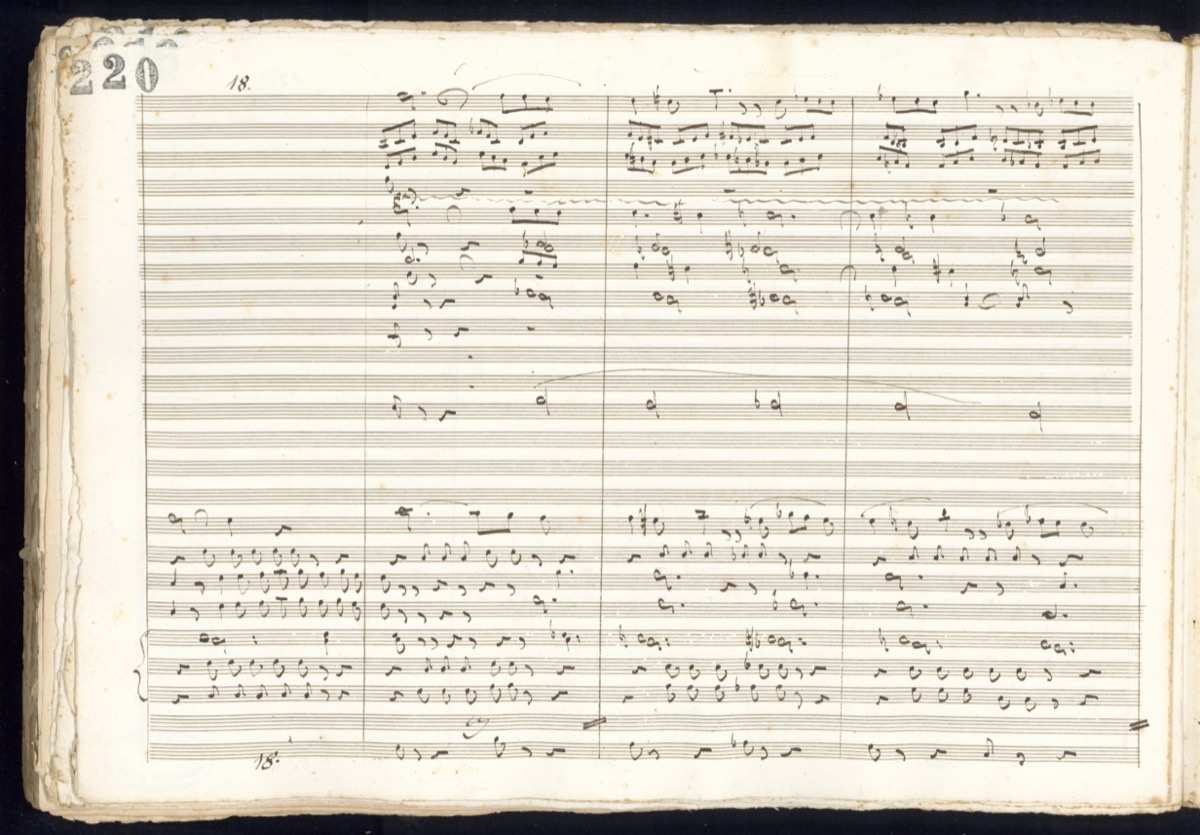 220
18.
18.